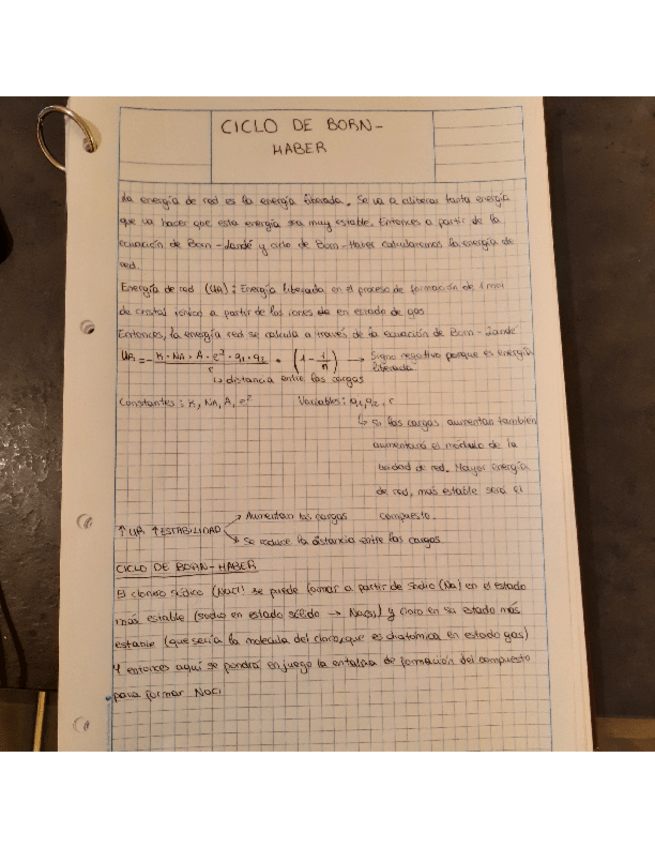 CICLO DE BORN-
HABER
La energía de red es la energía liberada. Se va a aliberar tanta energía
que va hacer que esta energía sea muy estable. Entonces a partir de la
ecuación de Born-Landé y ciclo de Born-Haber calcularemos la energía de
red.
Energía de red (UR): Energía liberada en el proceso de formación de 1 mol
de cristal iónico a partir de los iones de en estado de gas
Entonces, la energía red se calcula a través de la ecuación de Born-Landé
UR = - K · NA · A · e² · q1 · q2 / r · (1 - 1/n) → Signo negativo porque es energía
liberada.
↳ distancia entre las cargas
Constantes: K, NA, A, e² Variables: q1, q2, r
↳ Si las cargas aumentan también
aumentará el módulo de la
unidad de red. Mayor energía
de red, más estable será el
compuesto.
↑ UR ↑ ESTABILIDAD → Aumentan las cargas
→ Se reduce la distancia entre las cargas.
CICLO DE BORN-HABER
El cloruro sódico (NaCl) se puede formar a partir de sodio (Na) en el estado
más estable (sodio en estado sólido → Na(s)) y cloro en su estado más
estable (que sería la molécula del cloro, que es diatómica en estado gas)
Y entonces aquí se pondrá en juego la entalpía de formación del compuesto
para formar NaCl